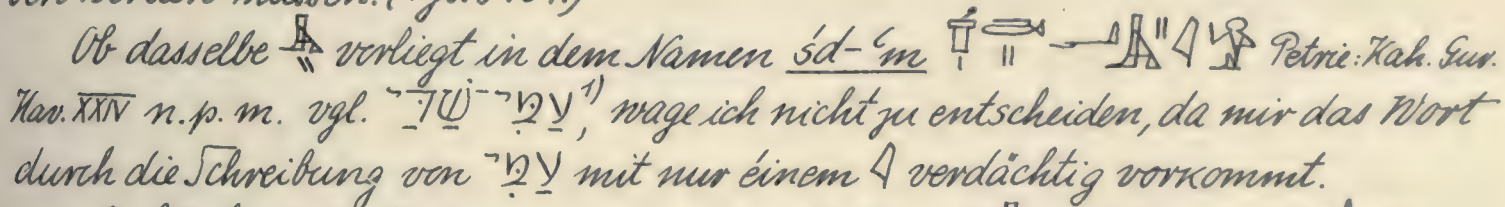 müssen.
Ob dasselbe vorliegt in dem Namen śd-ʿm Petrie: Kah. Gur.
Haw. XXIV n. p. m. vgl. עַמִּי־שַׁדַּי 1), wage ich nicht zu entscheiden, da mir das Wort
durch die Schreibung von עַמִּי mit nur éinem verdächtig vorkommt.